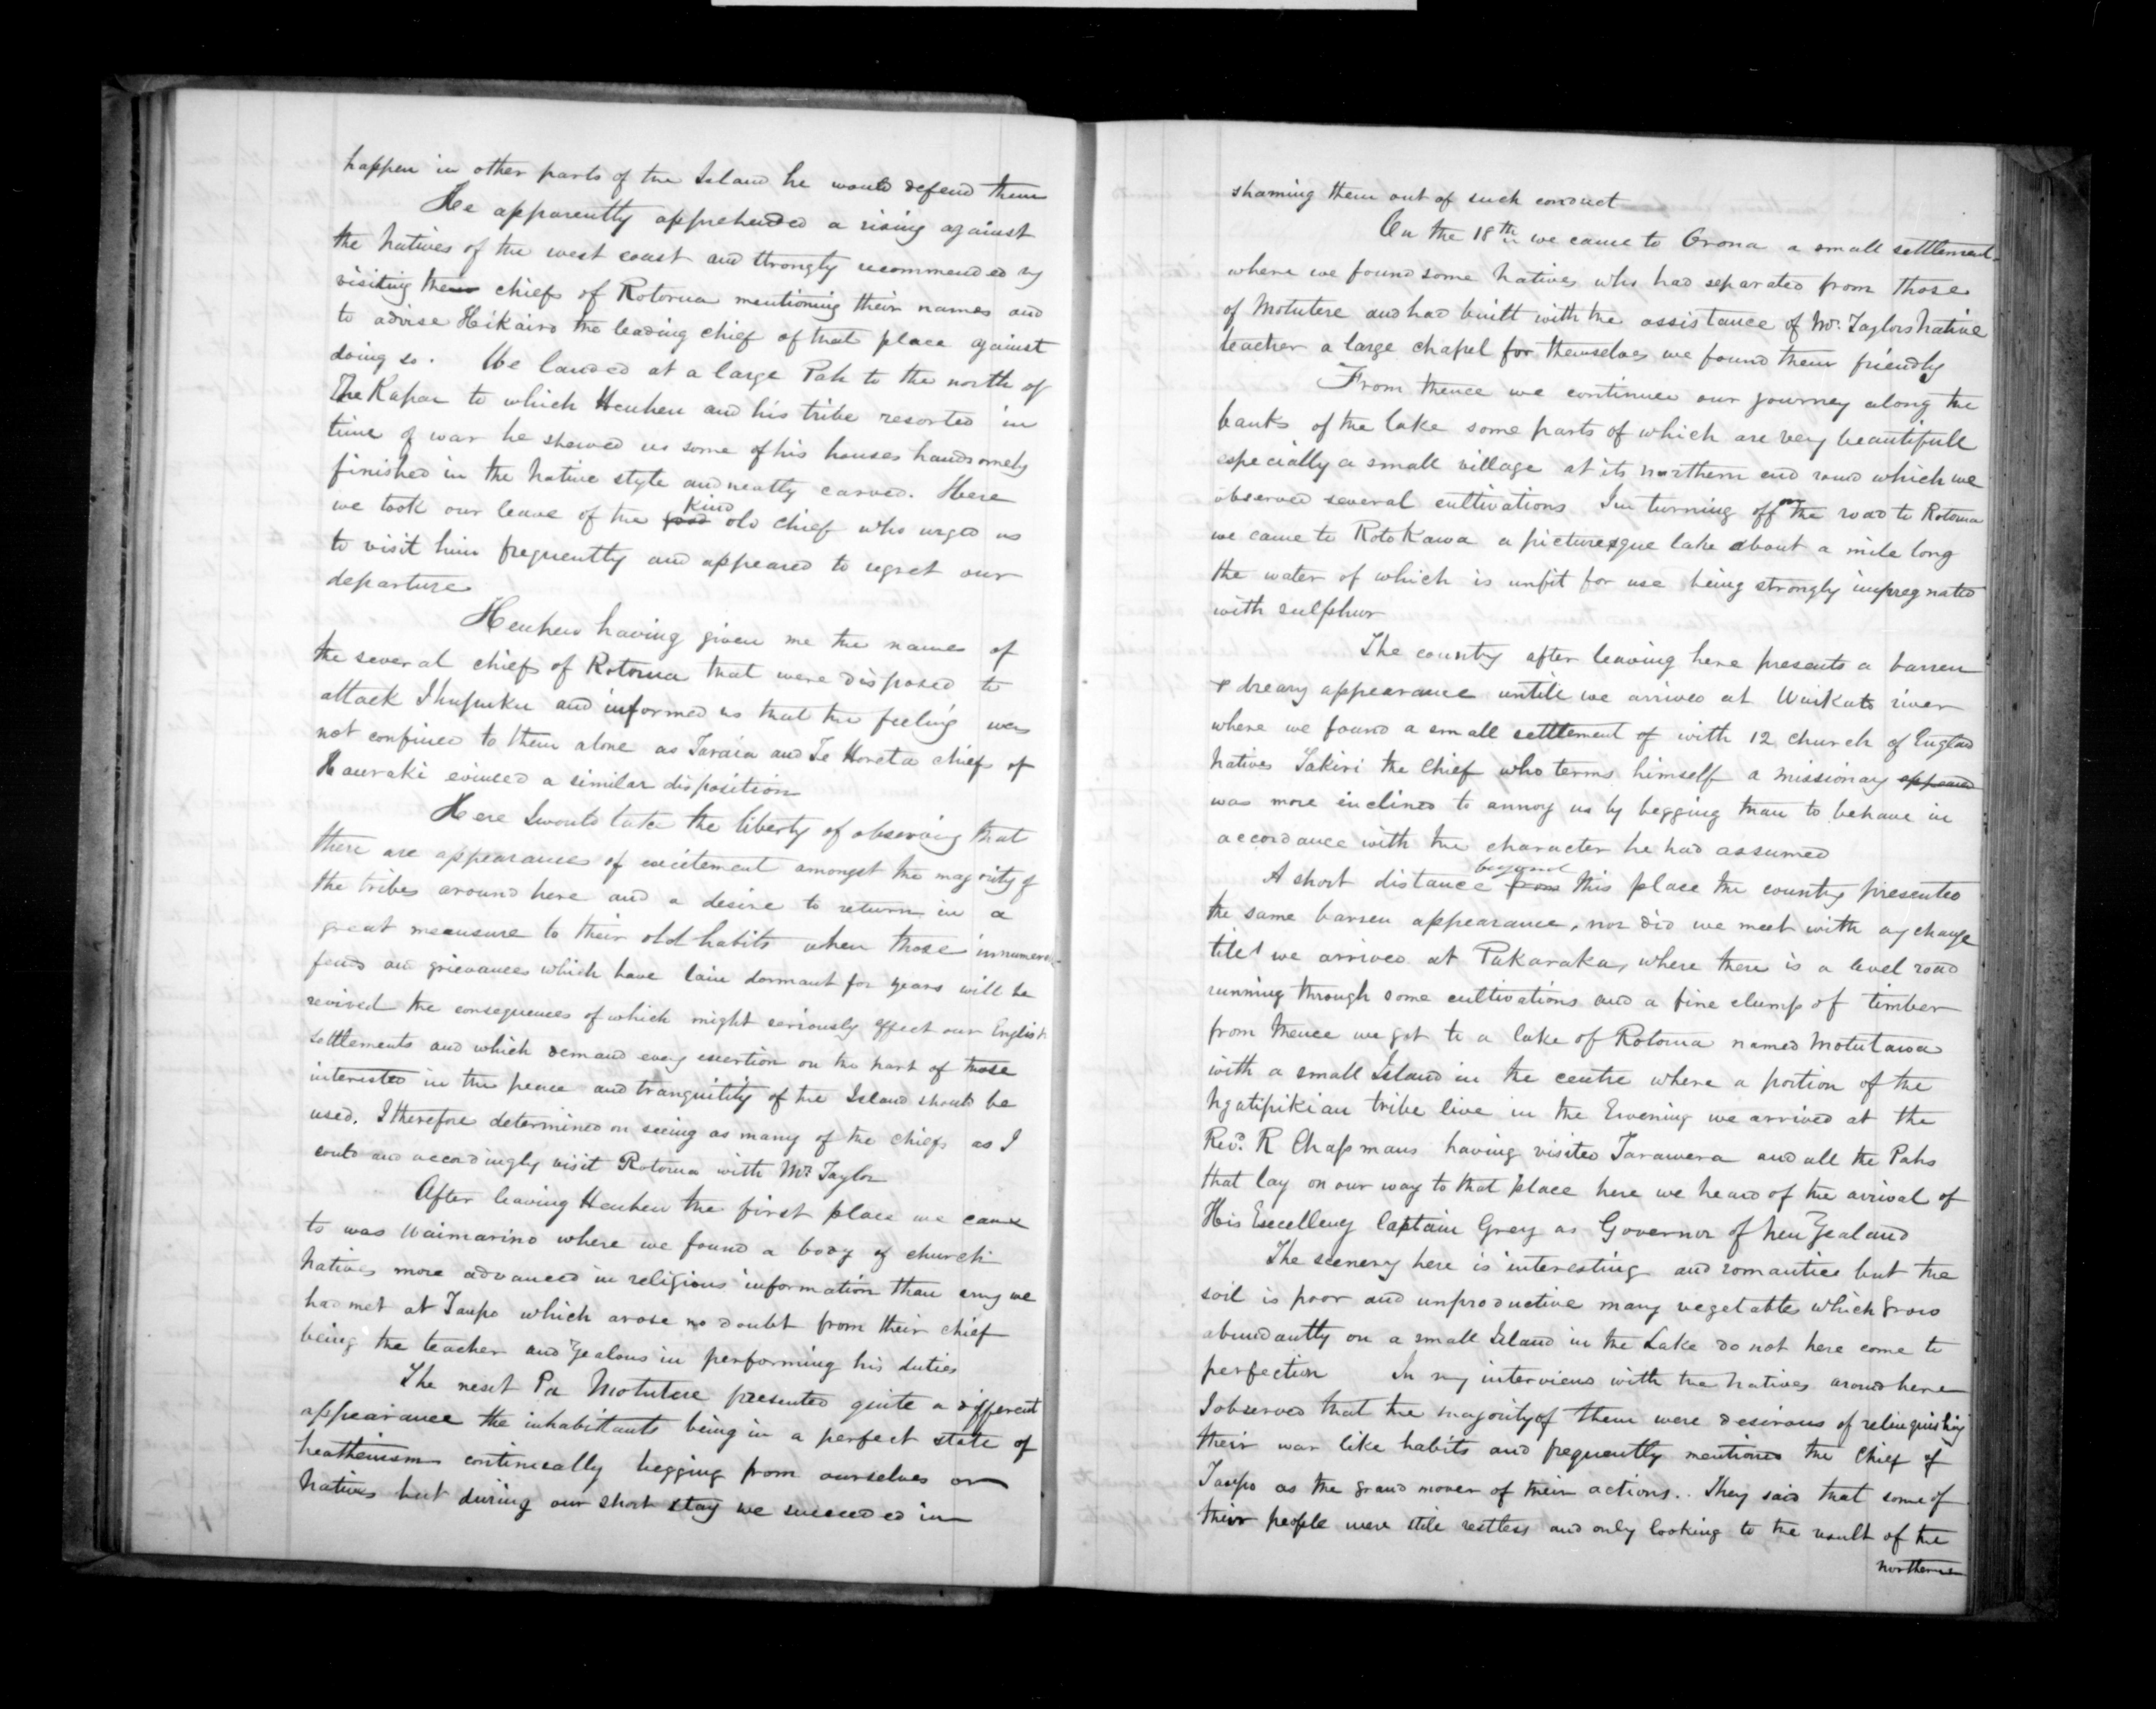 happen in other parts of the Island he would defend them
He apparently apprehended a rising against
the Natives of the west coast and strongly recommended my
visiting the chiefs of Rotorua mentioning their names and
to advise Hikairo the leading chief of that place against
doing so. We landed at a large Pah to the north of
The Rapa to which Heuheu and his tribe resorted in
time of war he shewed us some of his houses handsomely
finished in the Native style and neatly carved. Here
we took our leave of the kind old chief who urged us
to visit him frequently and appeared to regret our
departure
Heuheu having given me the names of
the several chiefs of Rotorua that were disposed to
attack Ihupuku and informed us that the feeling was
not confined to them alone as Taraia and Te Horeta chiefs of
Hauraki evinced a similar disposition
Here I would take the liberty of observing that
there are appearances of excitement amongst the majority of
the tribes around here and a desire to return in a
great meausure to their old habits when those innumera
feuds and grievances which have lain dormant for years will be
revived the consequences of which might seriously effect our English
settlements and which demand every exertion on the part of those
interested in the peace and tranquility of the Island should be
used. I therefore determined on seeing as many of the chiefs as I
could and accordingly visit Rotorua with Mr Taylor
After leaving Heuheu the first place we came
to was Waimarino where we found a body of church
Natives more advanced in religious information than any we
had met at Taupo which arose no doubt from their chief
being the teacher and zealous in performing his duties
The next Pa Motutere presented quite a different
appearance the inhabitants being in a perfect state of
heathenism continually begging from ourselves or
Natives but during our short stay we succeeded in
shaming them out of such conduct
On the 18th we came to Orona a small settlement
where we found some Natives who had separated from those
of Motutere and had built with the assistance of Mr. Taylors Native
teacher a large chapel for themselves we found them friendly
From thence we continued our journey along the
banks of the lake some parts of which are very beautifull
especially a small village at its northern end round which we
observed several cultivations In turning off on the road to Rotorua
we came to Roto Kawa a picturesque lake about a mile long
the water of which is unfit for use being strongly impregnated
with sulphur
The country after leaving here presents a barren
& dreary appearance untill we arrived at Waikato river
where we found a small settlement of with 12 church of England
Natives Takiri the Chief who terms himself a missionary appeared
was more inclined to annoy us by begging than to behave in
accordance with the character he had assumed
A short distance from beyond this place the country presented
the same barren appearance, nor did we meet with any change
till we arrived at Pukaraka, where there is a level road
running through some cultivations and a fine clump of timber
from thence we got to a lake of Rotorua named Motutawa
with a small Island in the centre where a portion of the
Ngatipikiau tribe live in the Evening we arrived at the
Revd. R Chapmans having visited Tarawera and all the Pahs
that lay on our way to that place here we heard of the arrival of
His Excellency Captain Grey as Governor of New Zealand
The scenery here is interesting and romantic but the
soil is poor and unproductive many vegetables which grow
abundantly on a small Island in the Lake do not here come to
perfection In my interviews with the Natives around here
I observed that the majority of them were desirous of relinquishing
their war like habits and frequently mentioned the Chief of
Taupo as the grand mover of their actions.. They said that some of
their people were still restless and only looking to the result of the
northern